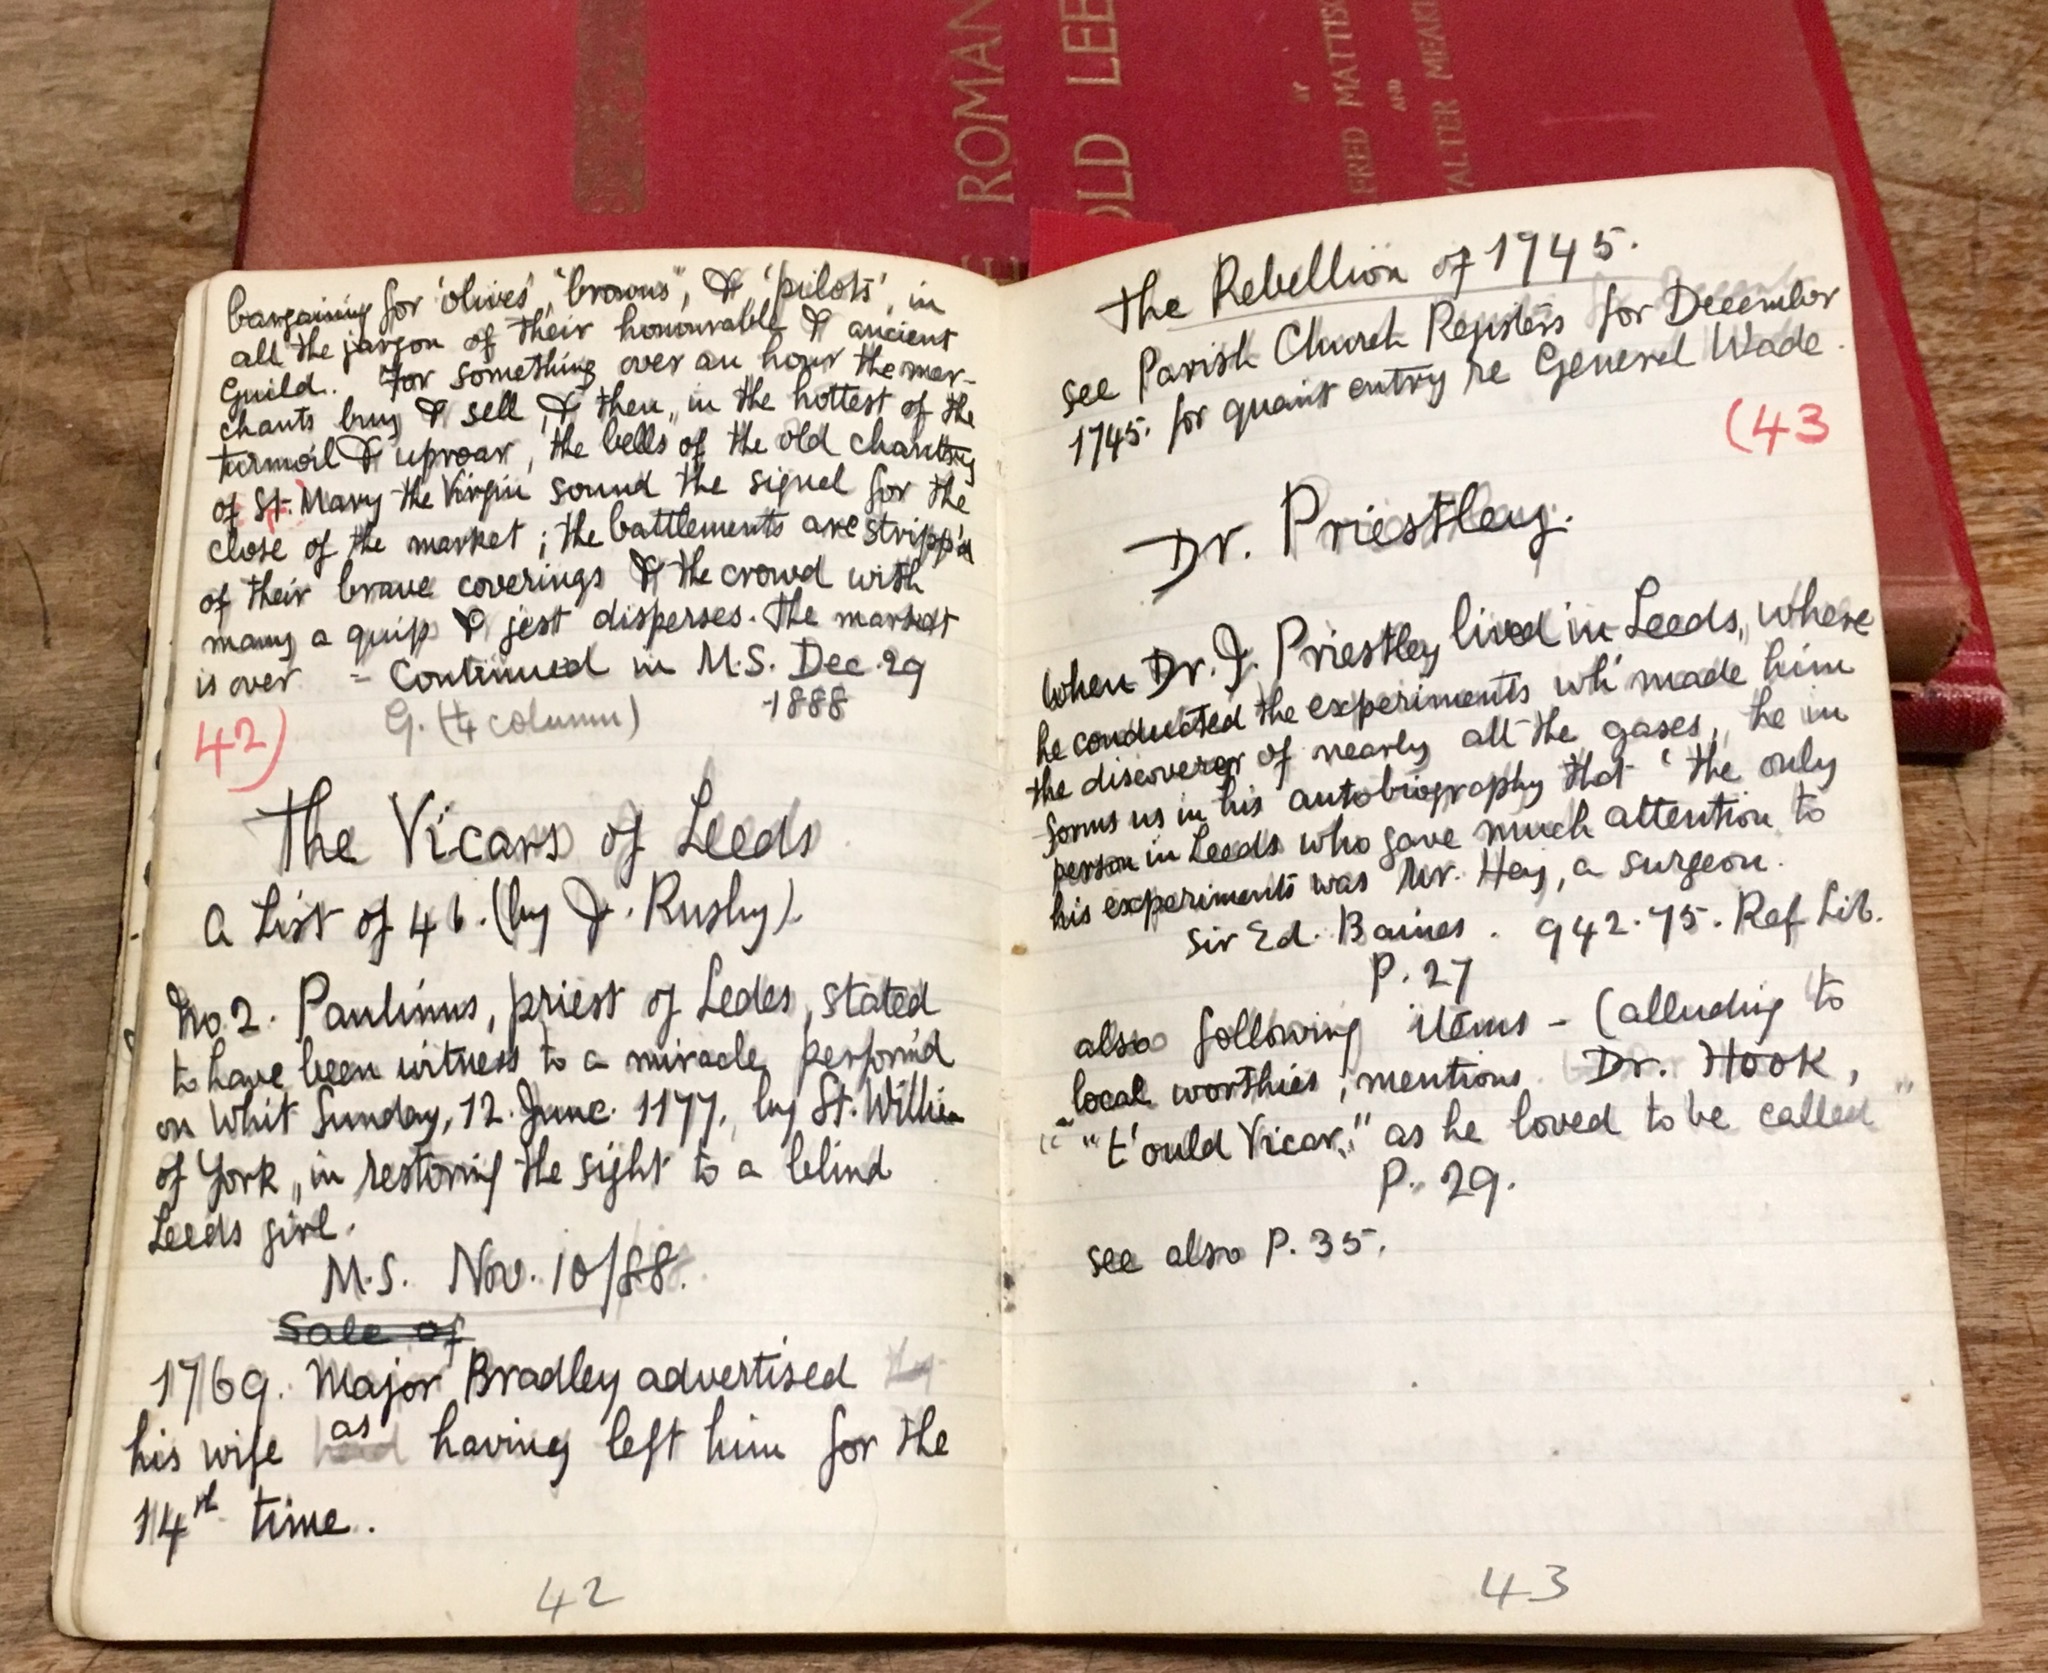 ROMAN
OLD LEE
BY
FRED MATTIS
AND
WALTER MEAK
bargaining for 'olives', 'browns', & 'pilots', in
all the jargon of their honourable & ancient
Guild. For something over an hour the mer-
chants buy & sell, & then, in the hottest of the
turmoil & uproar, the bells of the old chantry
of St. Mary the Virgin sound the signal for the
close of the market; the battlements are stripp'd
of their brave coverings & the crowd with
many a quip & jest disperses. The market
is over - Continued in M.S. Dec. 29
1888
42) G. (4 column)
The Vicars of Leeds
A List of 46. (by J. Rusby).
No. 2. Paulinus, priest of Ledes, stated
to have been witness to a miracle perform'd
on Whit Sunday, 12. June. 1177, by St. William
of York, in restoring the sight to a blind
Leeds girl.
M.S. Nov. 10/88.
Sale of
1769. Major Bradley advertised
his wife as having left him for the
14th time.
42
The Rebellion of 1745.
see Parish Church Registers for December
1745. for quaint entry re General Wade.
(43
Dr. Priestley.
When Dr. J. Priestley lived in Leeds, where
he conducted the experiments wh' made him
the discoverer of nearly all the gases, he in
forms us in his autobiography that 'the only
person in Leeds who gave much attention to
his experiments was Mr. Hey, a surgeon.
Sir Ed. Baines. 942.75. Ref Lib.
P. 27
also following items - (alluding to
local worthies, mentions Dr. Hook,
"t'ould Vicar," as he loved to be called"
P. 29.
see also P. 35.
43